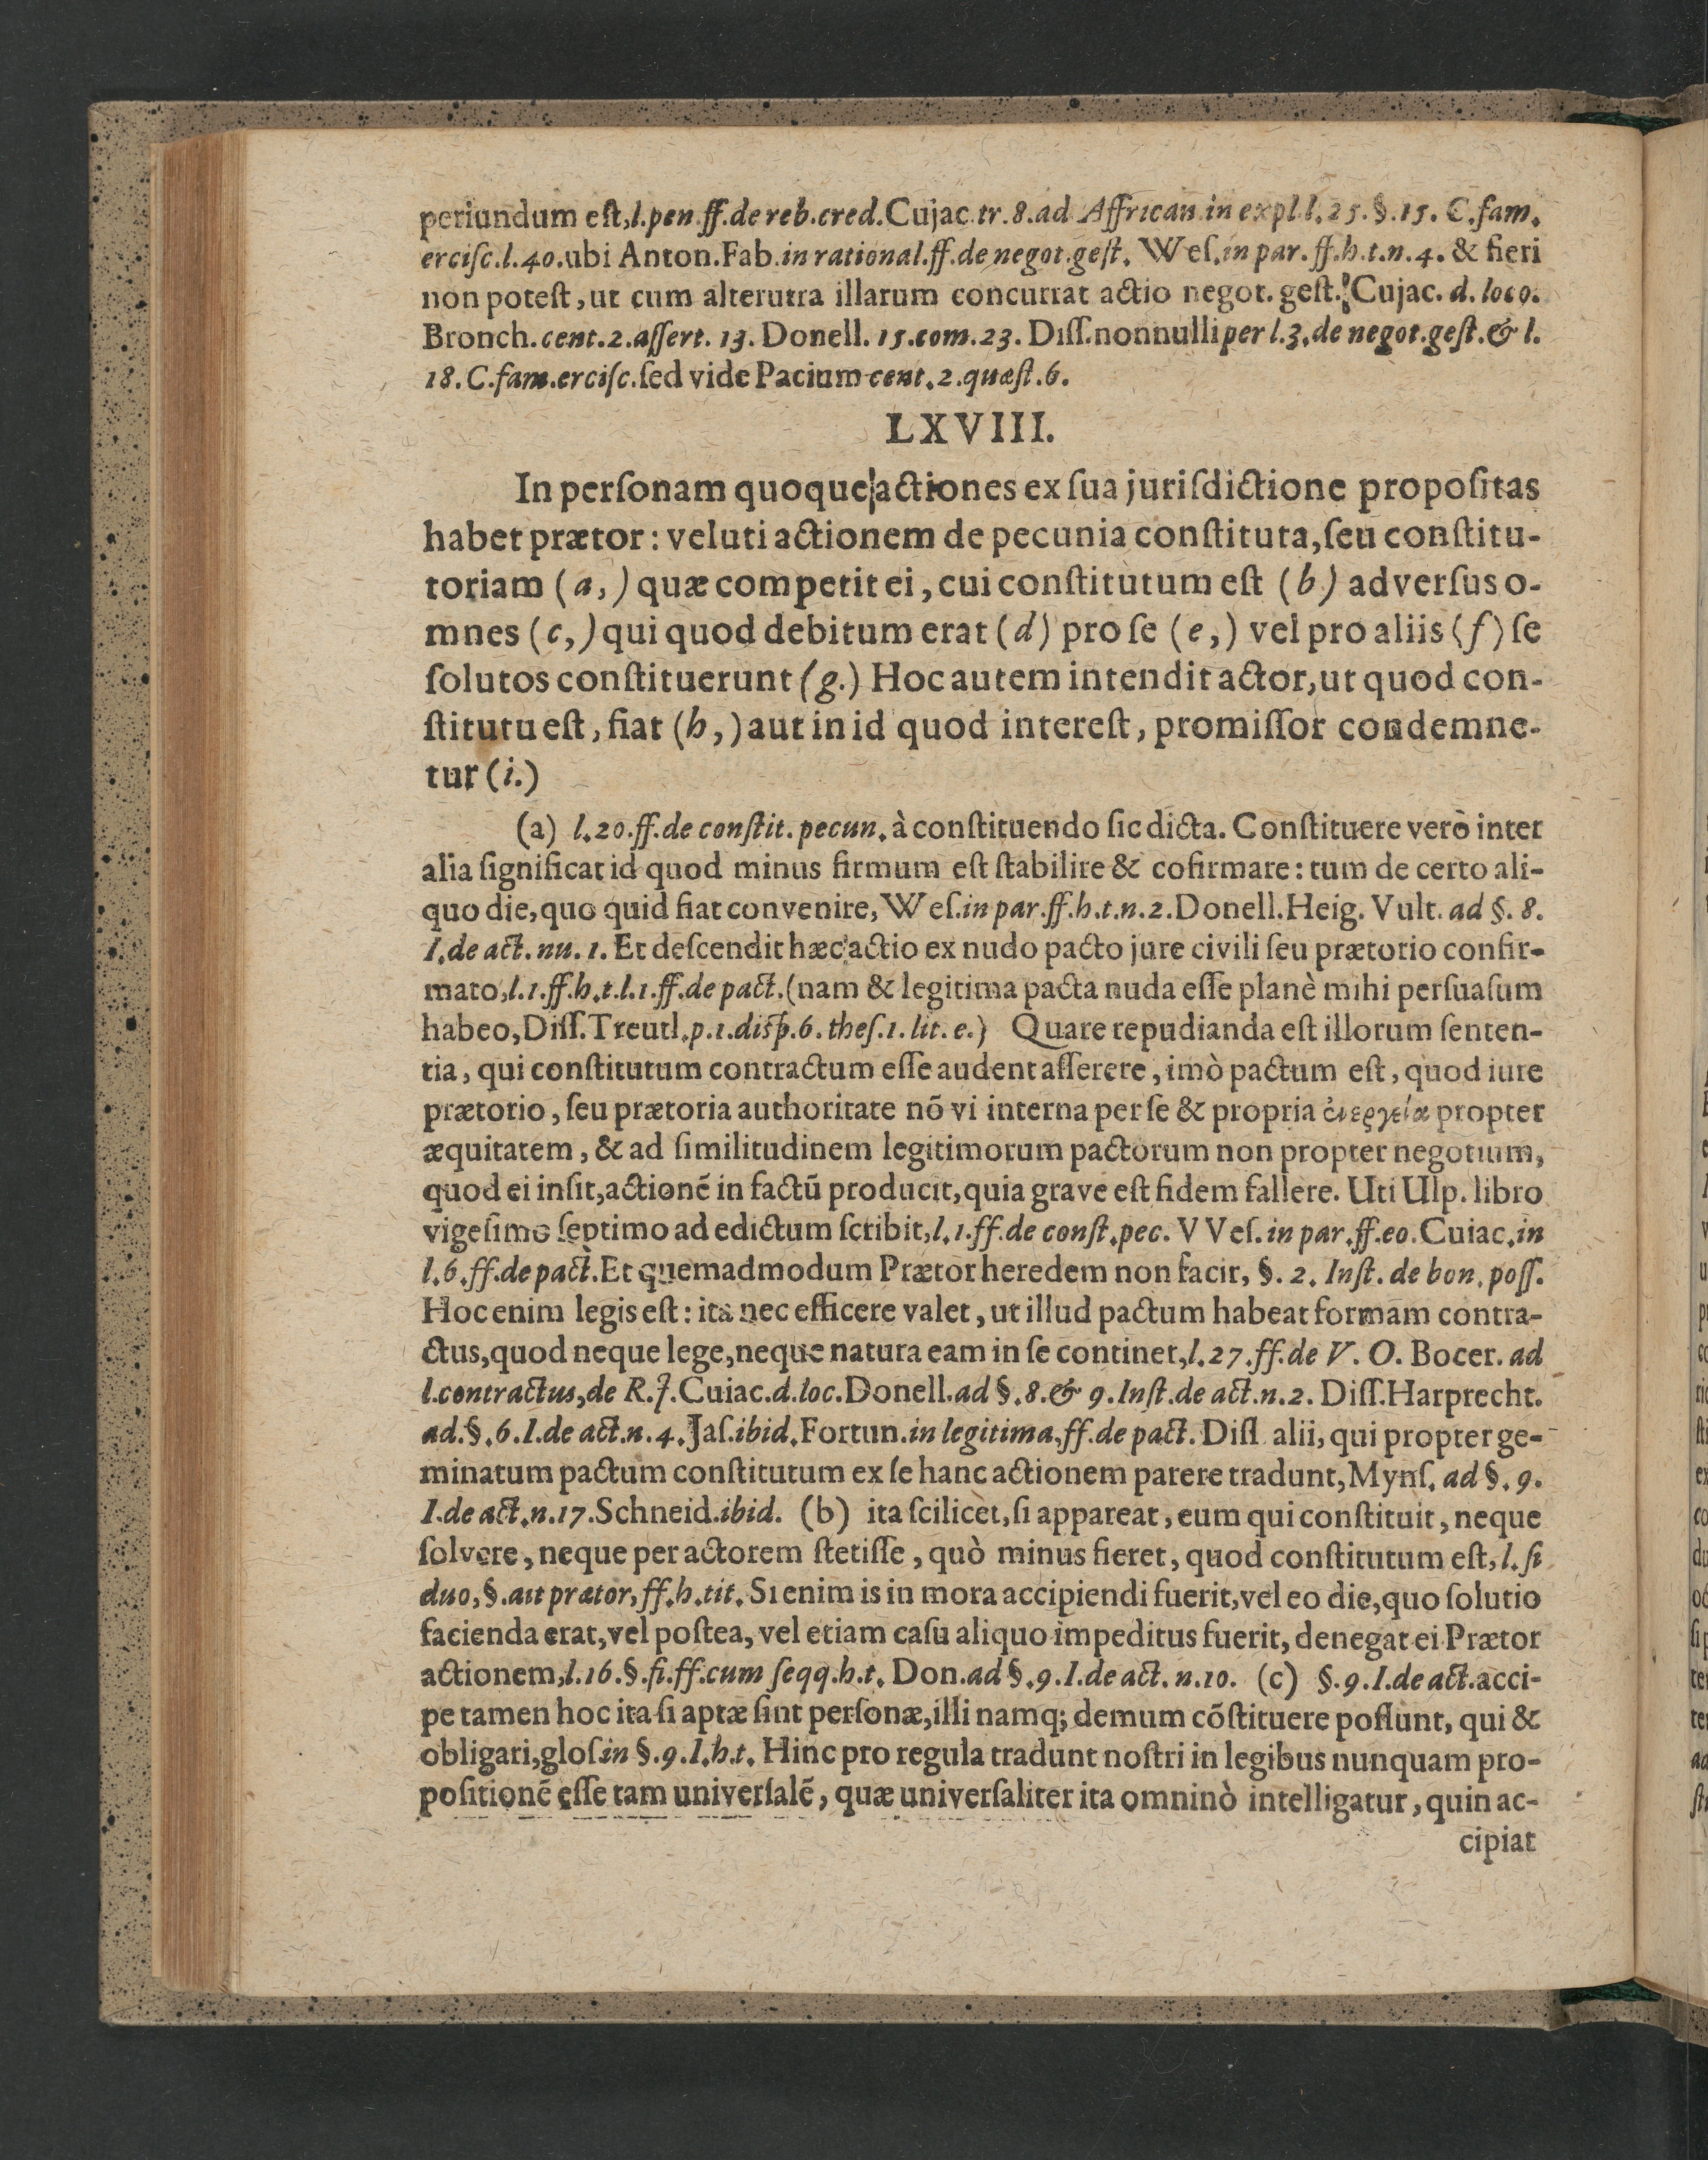 periundum eſt, l. pen. ff. de reb. cred. Cujac. tr. 8. ad Affrican. in expl. l. 25. §. 15. C. fam.
erciſc. l. 40. ubi Anton. Fab. in rational. ff. de negot. geſt. Weſ. in par. ff. h. t. n. 4. & fieri
non poteſt, ut cum alterutra illarum concurrat actio negot. geſt. Cujac. d. loco.
Bronch. cent. 2. aſſert. 13. Donell. 15. com. 23. Diſſ. nonnulli per l. 3. de negot. geſt. & l.
18. C. fam. erciſc. ſed vide Pacium cent. 2. quæſt. 6.
LXVIII.
In perſonam quoque actiones ex ſua juriſdictione propoſitas
habet prætor: veluti actionem de pecunia conſtituta, ſeu conſtitu-
toriam (a,) quæ competit ei, cui conſtitutum eſt (b) adverſus o-
mnes (c,) qui quod debitum erat (d) pro ſe (e,) vel pro aliis (f) ſe
ſolutos conſtituerunt (g.) Hoc autem intendit actor, ut quod con-
ſtitutu eſt, fiat (h,) aut in id quod intereſt, promiſſor condemne-
tur (i.)
(a) l. 20. ff. de conſtit. pecun. à conſtituendo ſic dicta. Conſtituere verò inter
alia ſignificat id quod minus firmum eſt ſtabilire & cofirmare: tum de certo ali-
quo die, quo quid fiat convenire, Weſ. in par. ff. h. t. n. 2. Donell. Heig. Vult. ad §. 8.
I. de act. nu. 1. Et deſcendit hæc actio ex nudo pacto jure civili ſeu prætorio confir-
mato, l. 1. ff. h. t. l. 1. ff. de pact. (nam & legitima pacta nuda eſſe planè mihi perſuaſum
habeo, Diſſ. Treutl. p. 1. diſp. 6. theſ. 1. lit. e.) Quare repudianda eſt illorum ſenten-
tia, qui conſtitutum contractum eſſe audent aſſerere, imò pactum eſt, quod iure
prætorio, ſeu prætoria authoritate nõ vi interna per ſe & propria ἐνεργεία propter
æquitatem, & ad ſimilitudinem legitimorum pactorum non propter negotium,
quod ei inſit, actionẽ in factũ producit, quia grave eſt fidem fallere. Uti Ulp. libro
vigeſimo ſeptimo ad edictum ſcribit, l. 1. ff. de conſt. pec. VVeſ. in par. ff. eo. Cuiac. in
l. 6. ff. de pact. Et quemadmodum Prætor heredem non facit, §. 2. Inſt. de bon. poſſ.
Hoc enim legis eſt: ita nec efficere valet, ut illud pactum habeat formam contra-
ctus, quod neque lege, neque natura eam in ſe continet, l. 27. ff. de V. O. Bocer. ad
l. contractus, de R. J. Cuiac. d. loc. Donell. ad §. 8. & 9. Inſt. de act. n. 2. Diſſ. Harprecht.
ad. §. 6. I. de act. n. 4. Jaſ. ibid. Fortun. in legitima. ff. de pact. Diſſ alii, qui propter ge-
minatum pactum conſtitutum ex ſe hanc actionem parere tradunt, Mynſ. ad §. 9.
I. de act. n. 17. Schneid. ibid. (b) ita ſcilicet, ſi appareat, eum qui conſtituit, neque
ſolvere, neque per actorem ſtetiſſe, quò minus fieret, quod conſtitutum eſt, l. ſi
duo, §. ait prætor, ff. h. tit. Si enim is in mora accipiendi fuerit, vel eo die, quo ſolutio
facienda erat, vel poſtea, vel etiam caſu aliquo impeditus fuerit, denegat ei Prætor
actionem, l. 16. §. fi. ff. cum ſeqq. h. t. Don. ad §. 9. I. de act. n. 10. (c) §. 9. I. de act. acci-
pe tamen hoc ita ſi aptæ ſint perſonæ, illi namq; demum cõſtituere poſſunt, qui &
obligari, gloſ in §. 9. I. h. t. Hinc pro regula tradunt noſtri in legibus nunquam pro-
poſitionẽ eſſe tam univerſalẽ, quæ univerſaliter ita omninò intelligatur, quin ac-
cipiat